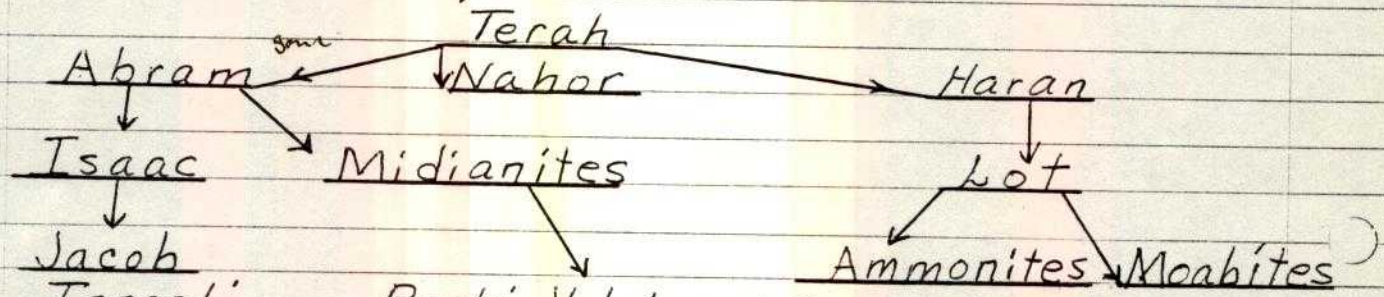 Terah
Abram Nahor Haran
Isaac Midianites Lot
Jacob Ammonites Moabites